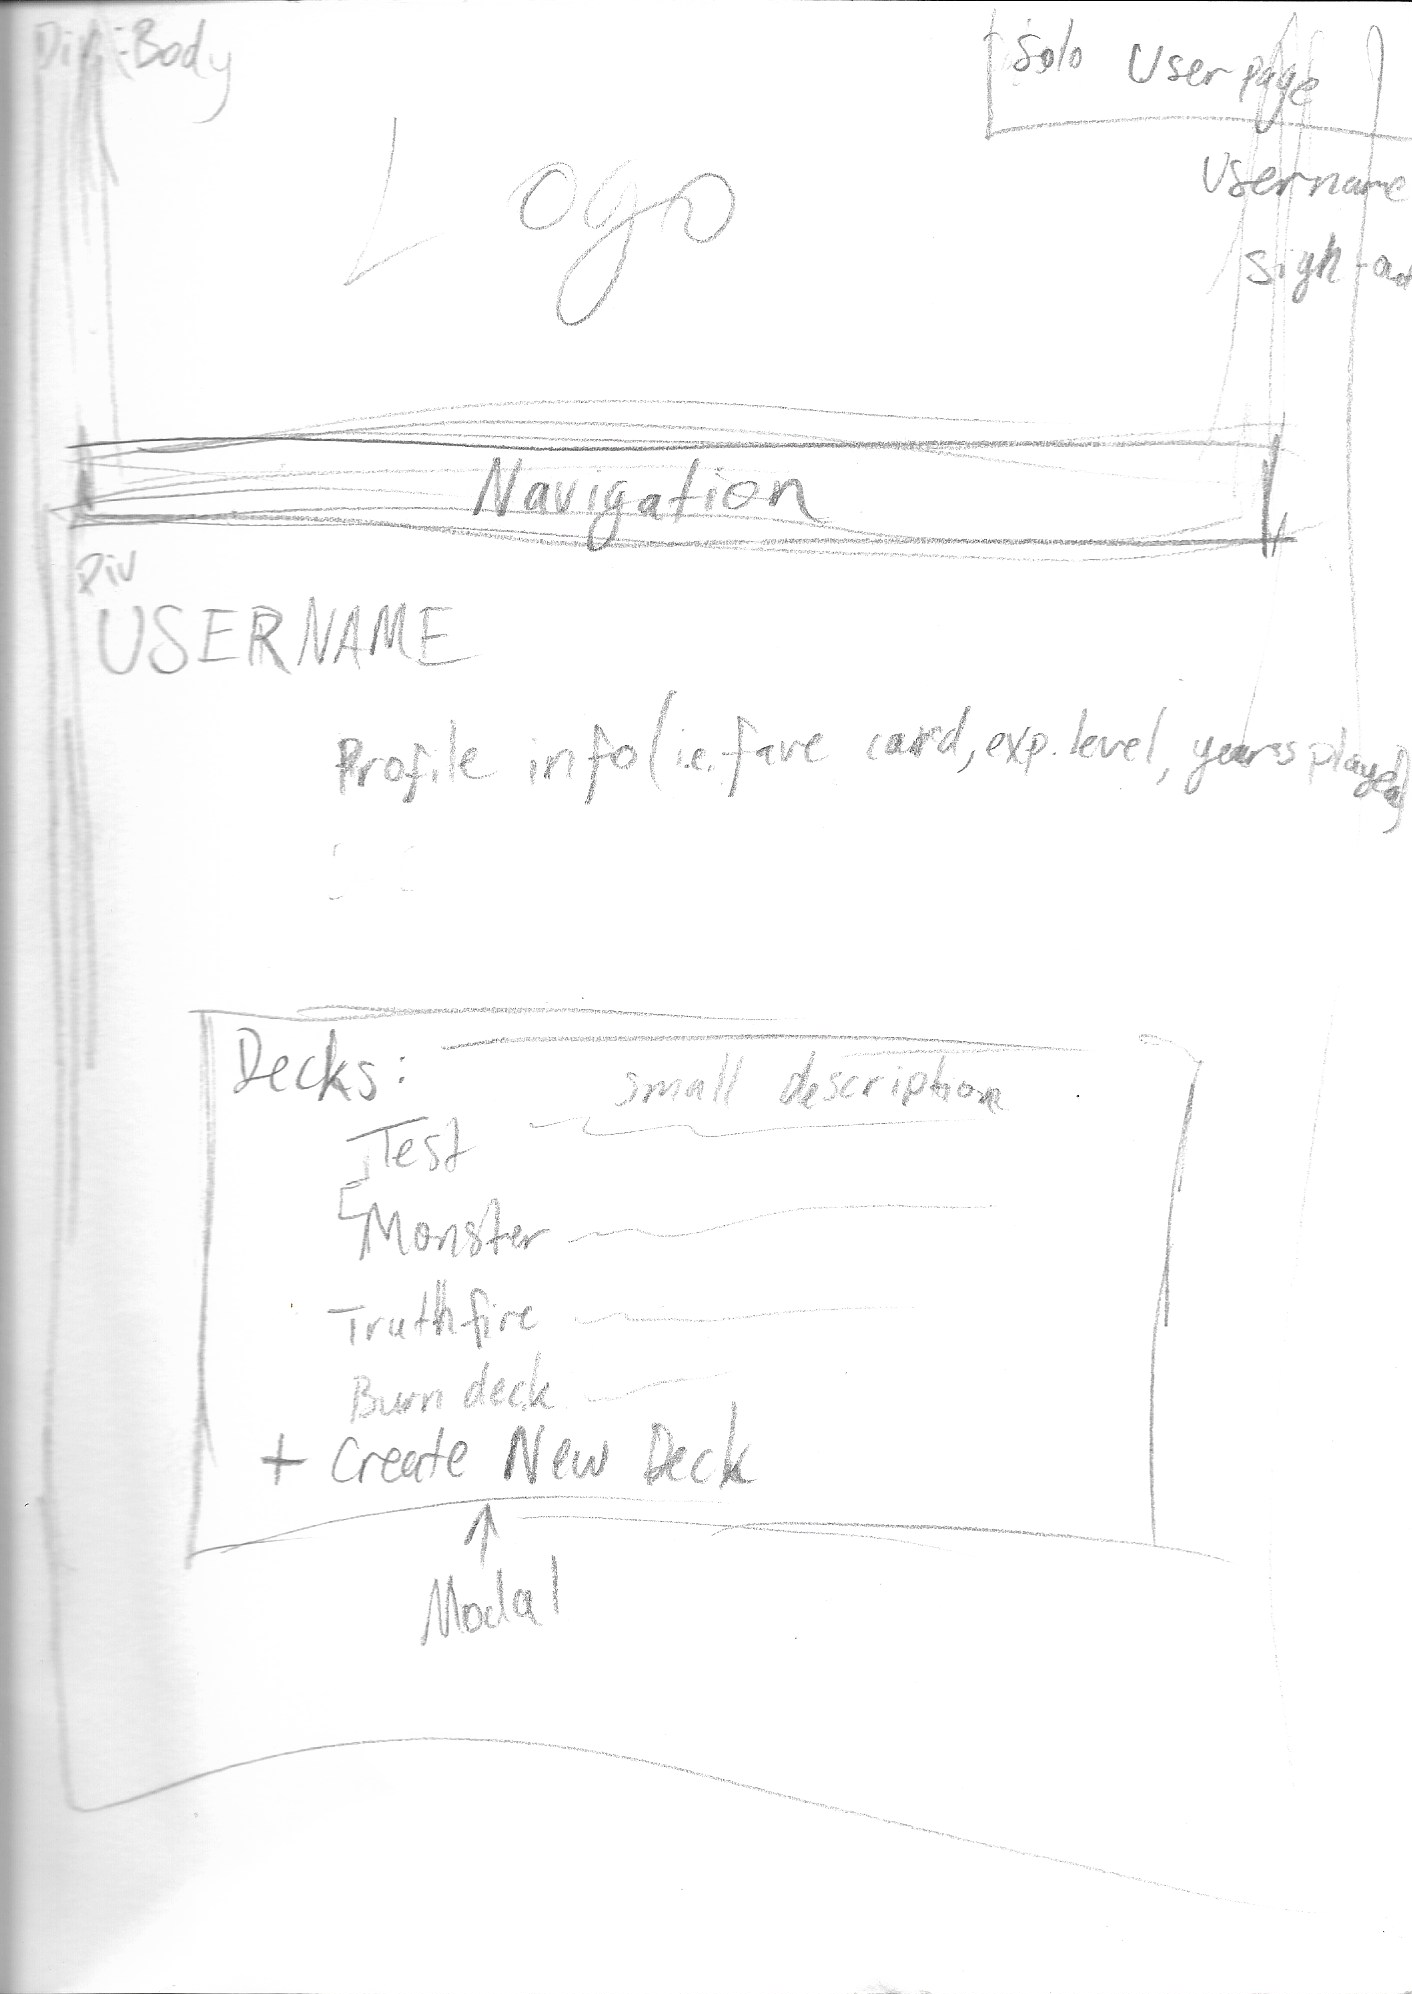 Div:Body
Solo User page
Username
sign-out
Logo
Navigation
Div
USERNAME
Profile info (i.e. fave card, exp. level, years played)
Decks:
small description
Test
Monster
Truthfire
Burn deck
+ Create New Deck
↑
Modal